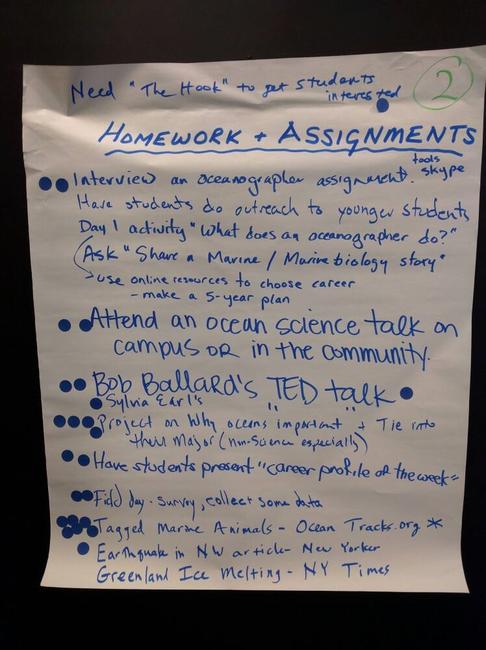 Need "The Hook" to get students
interested
2
HOMEWORK + ASSIGNMENTS
Interview an oceanographer assignment. tools skype
Have students do outreach to younger students
Day 1 activity "What does an oceanographer do?"
Ask "Share a Marine / Marine biology story"
use online resources to choose career
- make a 5-year plan
Attend an ocean science talk on
campus OR in the community.
Bob Ballard's "TED talk"
Sylvia Earl's
Project on Why oceans important + Tie into
their Major (non-Science especially)
Have students present "career profile of the week"
Field day - survey, collect some data
Tagged Marine Animals - Ocean Tracks.org *
Earthquake in NW article - New Yorker
Greenland Ice Melting - NY Times